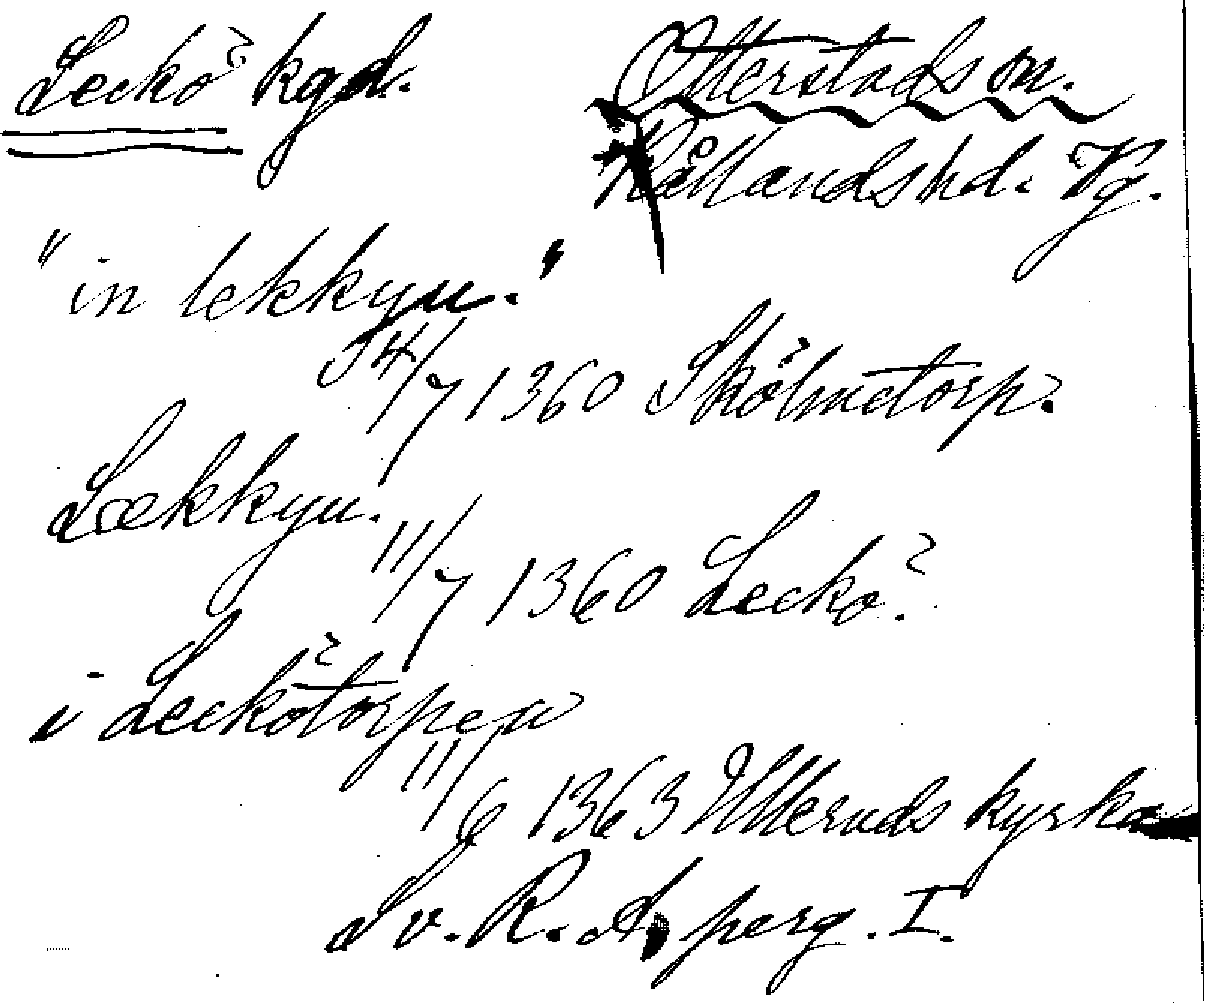 Leckö kgd. Otterstads sn.
Kållands hd. Vg.
"in lekkyu."
14/7 1360 Skölmetorp.
Lækkyu.
11/7 1360 Leckö.
i Leckötorpen
11/6 1363 Utteruds kyrka
Sv. R. A. perg. I.